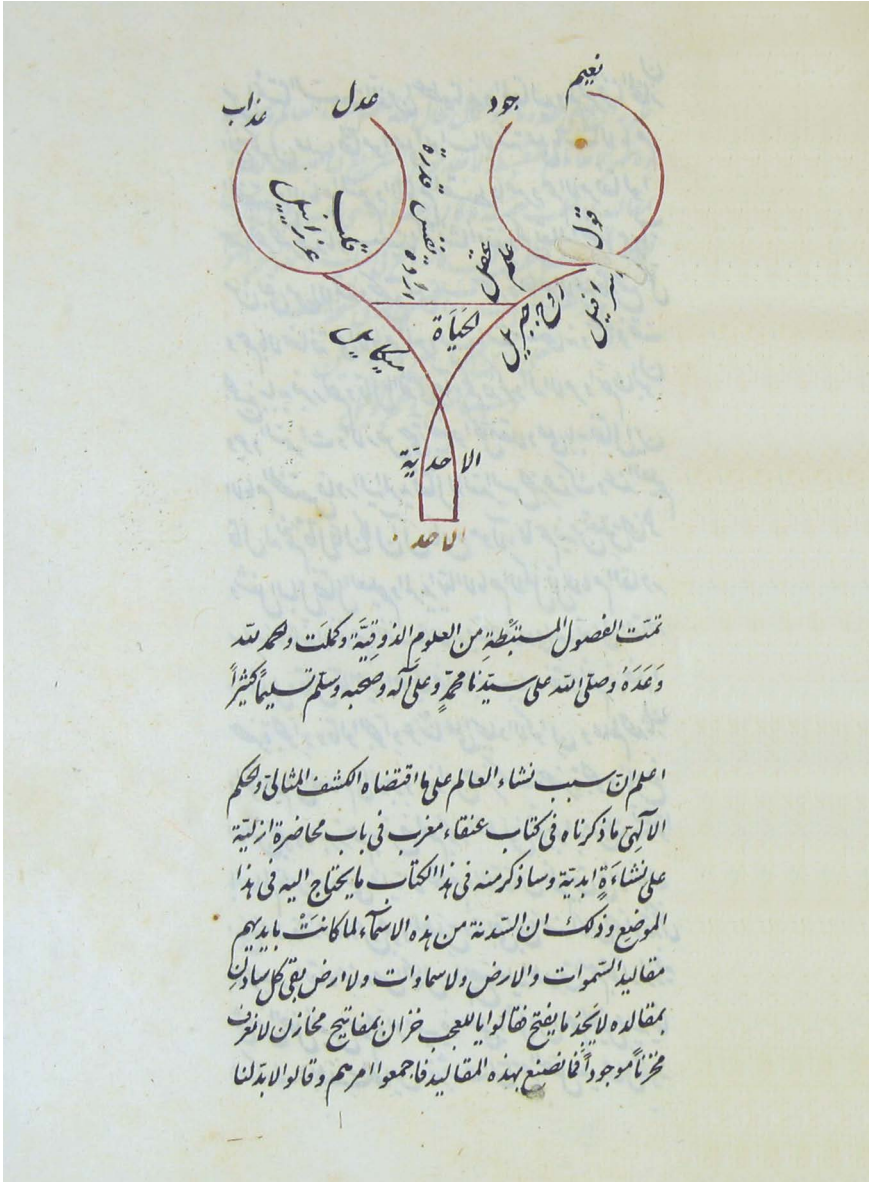 نعيم
جود
عدل
عذاب
قدرة
نفس
قلب
عزرائيل
قول
عقل
علم
جبريل
الحيَاة
ميكاييل
الاحديَّة
الاحد
تمّت الفصول المستنبْطةِ من العلوم الذوقيَّة وكملَت والحمد لله
وَحدَهُ وصلّى الله على سيّدنا محمّدٍ وعلى آله وصحبه وسلّم تسليماً كثيراً
اعلم انّ سبب نشاء العالم على ما اقتضاه الكشف المثاليّ والحكم
الآلهيّ ما ذكرناه فى كتاب عنقاء مغرب فى باب محاضرة ازليّة
على نشاءَةٍ ابديّة وساذكر منه فى هذا الكتاب ما يحتاج اليه فى هذا
الموضع وذلك ان السّدنة من هذه الاسمآء لما كانَتْ بايديهم
مقاليد السّموات والارض ولا سماوات ولا ارض بقى كل سادن
بمقالده لا يَجِدُ ما يفتح فقالوا يا للعجب خزان بمفاتيح مخازن لا نعرف
مخزناً موجوداً فما نصنع بهذه المقاليد فاجمعوا امرهم وقالوا لا بدّ لنا